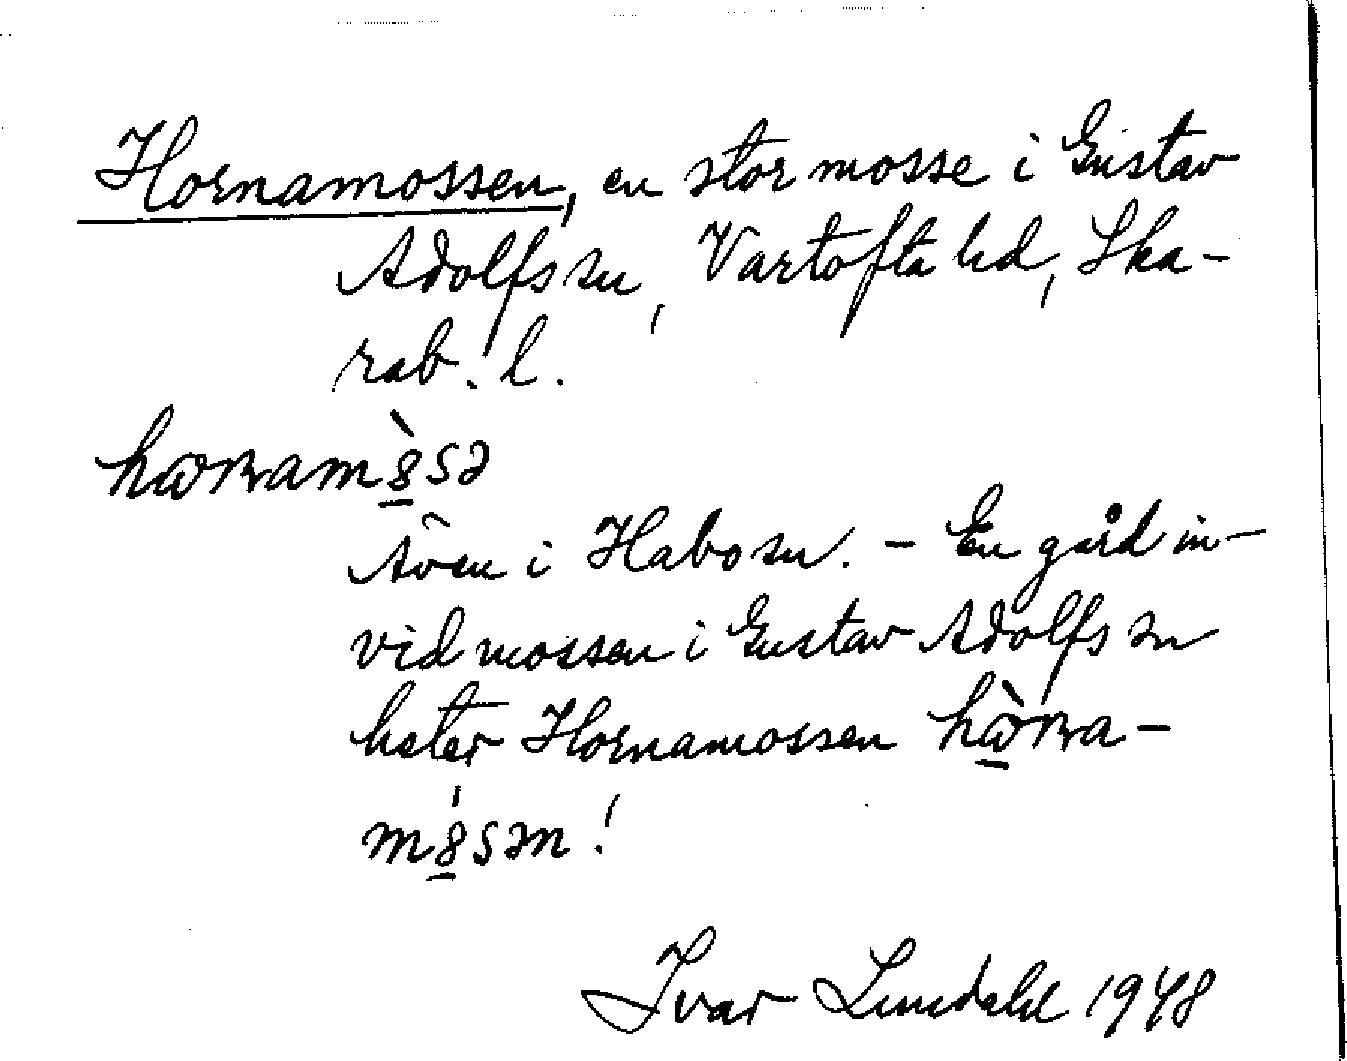 Hornamossen, en stor mosse i Gustav
Adolfs sn, Vartofta hd, Ska-
rab. l.
Även i Habo sn. – En gård in-
vid mossen i Gustav Adolfs sn
heter Hornamossen
Ivar Lundahl 1948